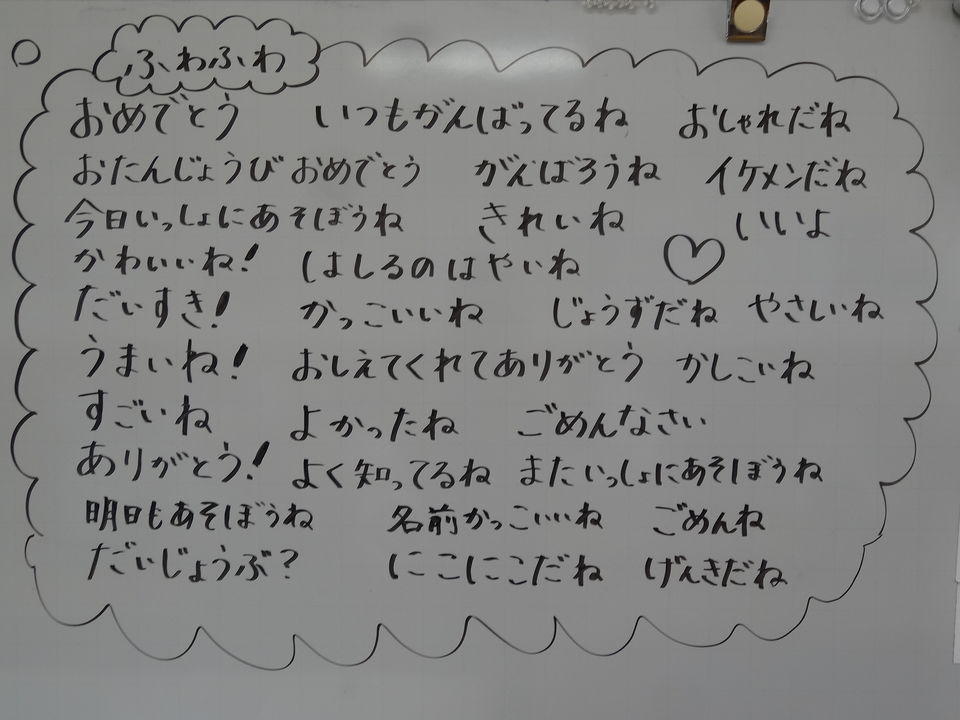 ふわふわ
おめでとう いつもがんばってるね おしゃれだね
おたんじょうびおめでとう がんばろうね イケメンだね
今日いっしょにあそぼうね きれいね いいよ
かわいいね! はしるのはやいね
だいすき! かっこいいね じょうずだね やさしいね
うまいね! おしえてくれてありがとう かしこいね
すごいね よかったね ごめんなさい
ありがとう! よく知ってるね またいっしょにあそぼうね
明日もあそぼうね 名前かっこいいね ごめんね
だいじょうぶ? にこにこだね げんきだね